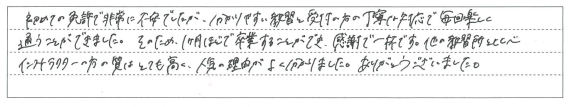 初めての免許で非常に不安でしたが、分かりやすい教習と受付の方の丁寧な対応で毎回楽しく
通うことができました。そのため、1ヶ月ほどで卒業することができ、感謝で一杯です。他の教習所とくらべ
インストラクターの方の質はとても高く、人気の理由がよく分かりました。ありがとうございました。